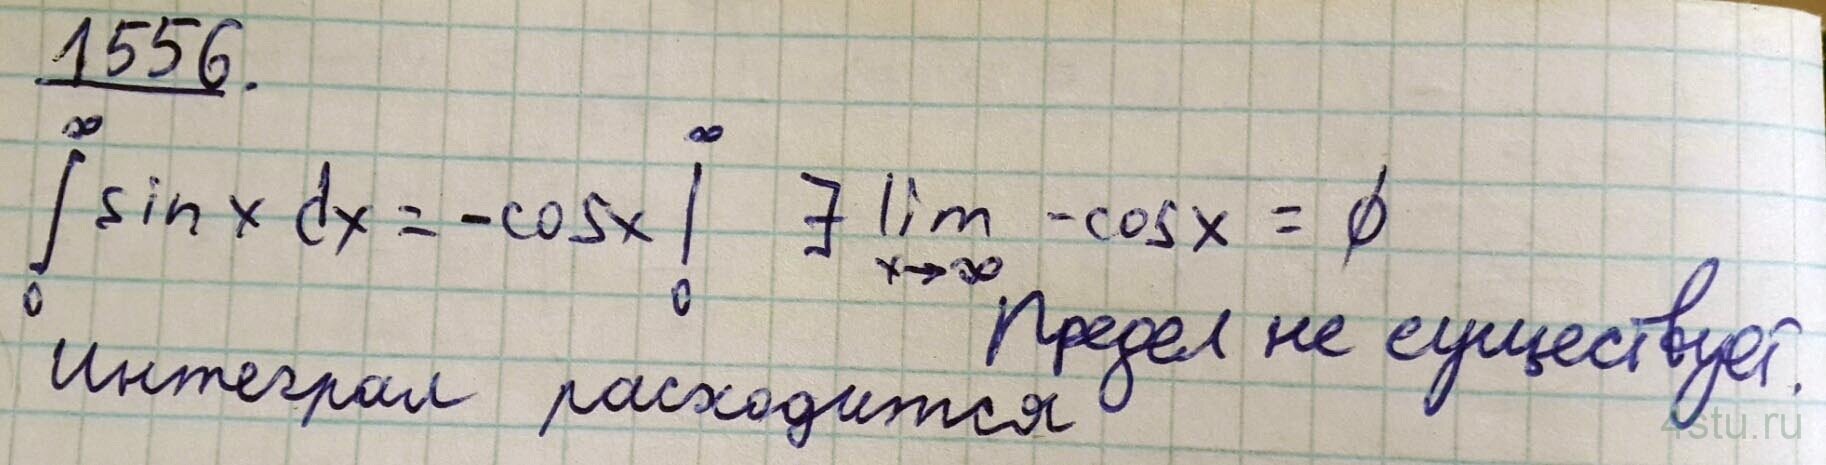 1556.
∫₀^∞ sin x dx = -cos x |₀^∞ ∃ lim_{x→∞} -cos x = ∅
Предел не существует.
Интеграл расходится
4stu.ru